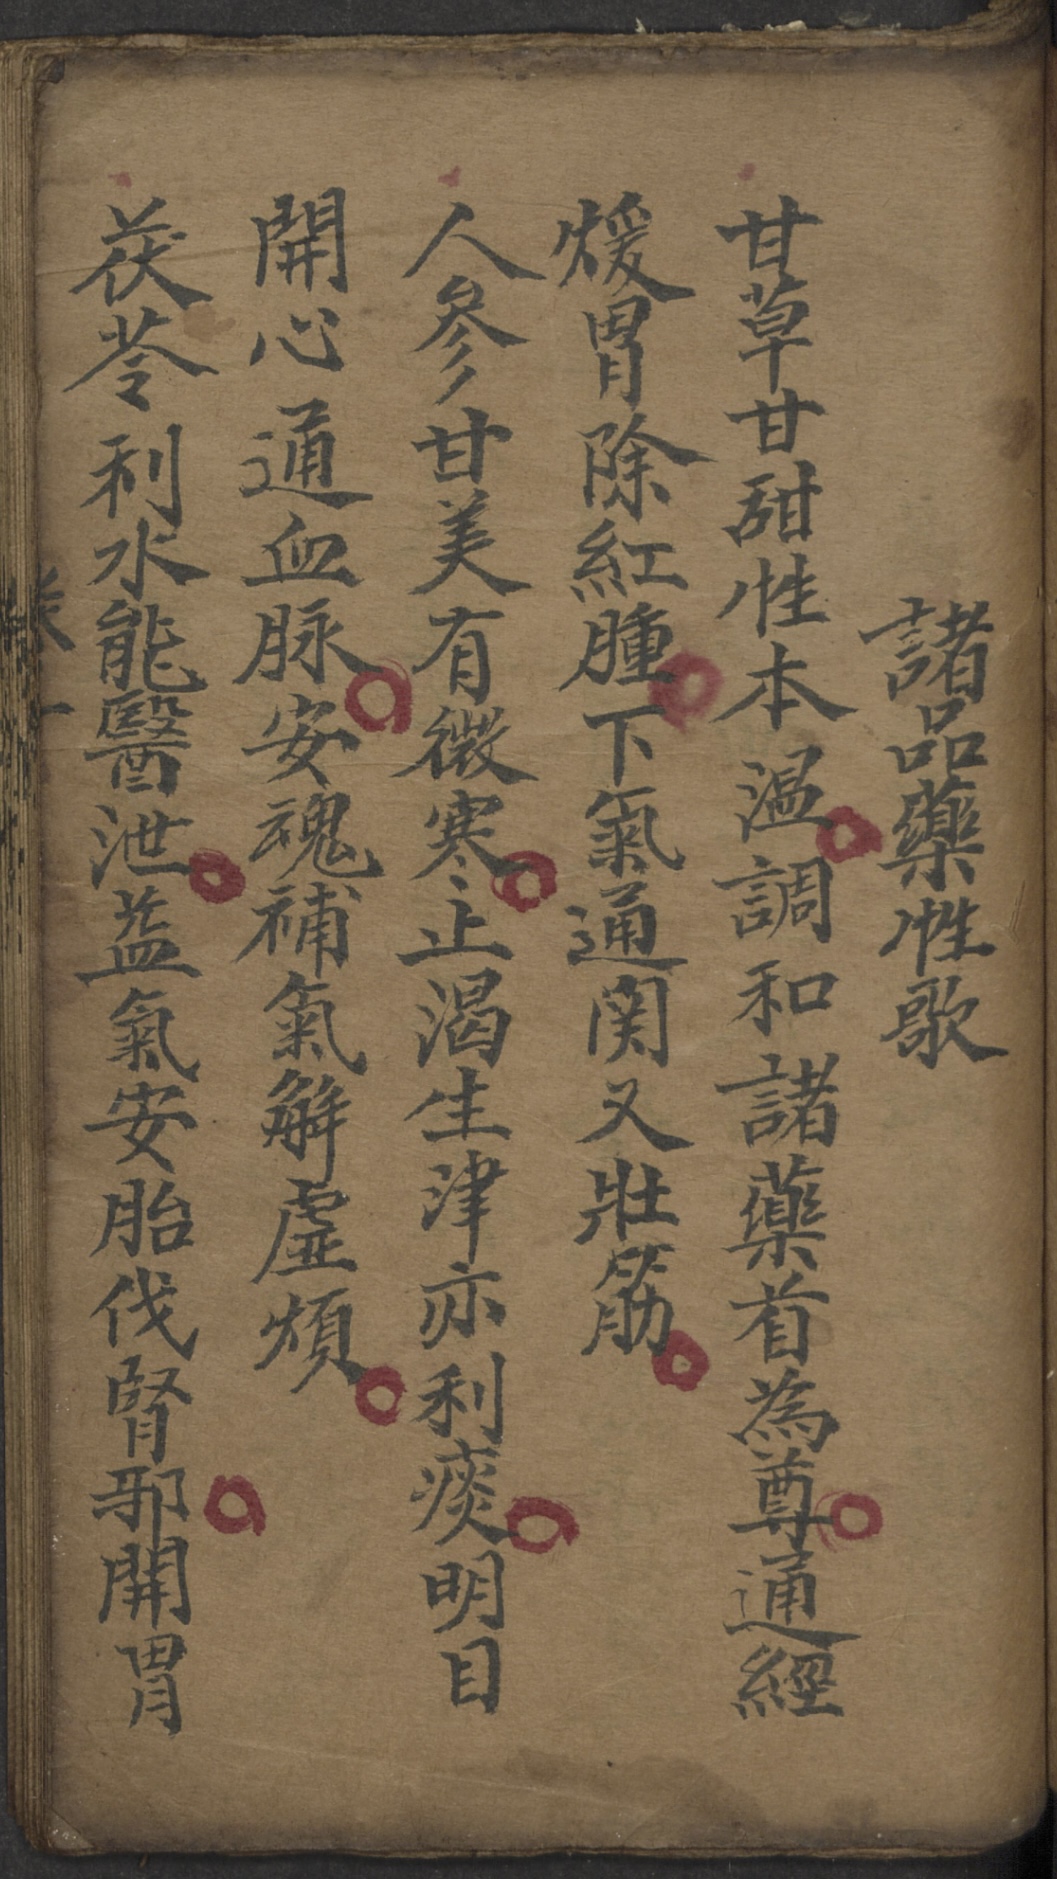 諸品藥性歌
甘草甘甜性本温調和諸藥首為尊通經
煖胃除紅腫下氣通関又壯筋
人參甘美有微寒止渴生津亦利痰明目
開心通血脉安魂補氣解虛煩
茯苓利水能醫泄益氣安胎伐腎邪開胃